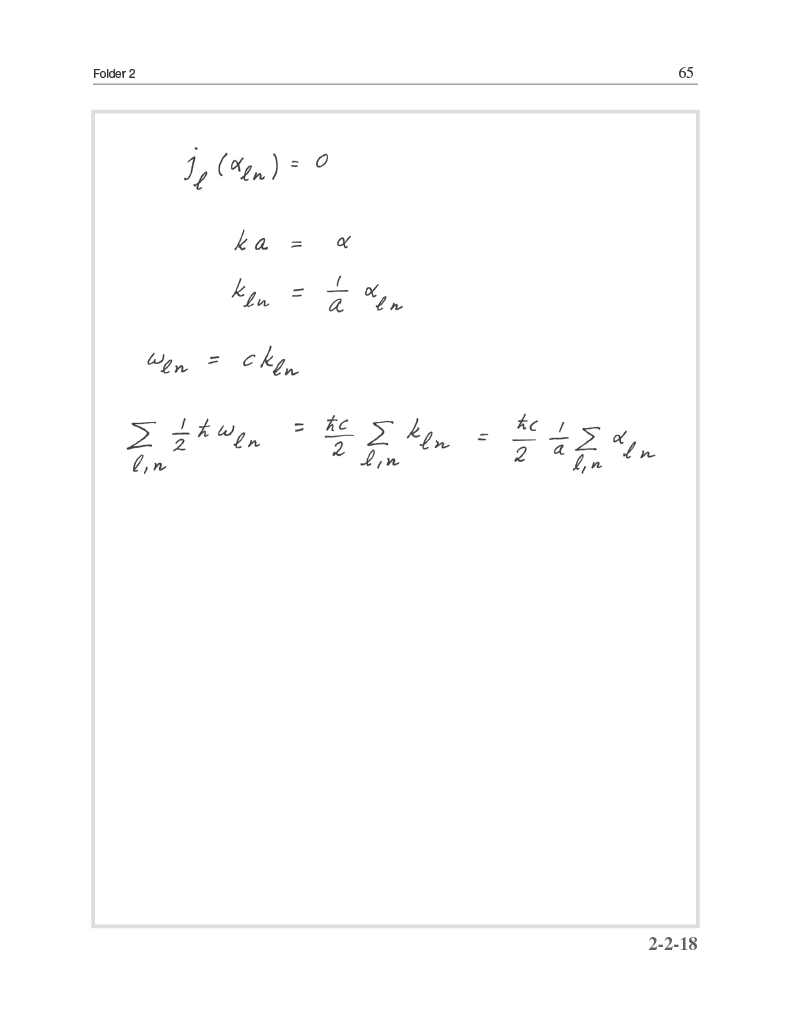 Folder 2 65
j_ℓ (α_ℓn) = 0
k a = α
k_ℓn = 1/a α_ℓn
ω_ℓn = c k_ℓn
∑_ℓ,n 1/2 ħ ω_ℓn = ħc/2 ∑_ℓ,n k_ℓn = ħc/2 1/a ∑_ℓ,n α_ℓn
2-2-18